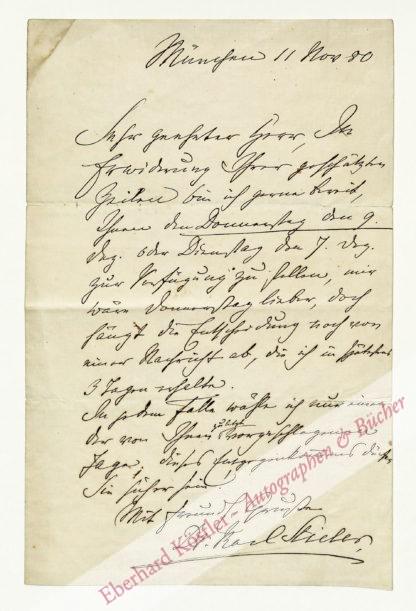 München 11 Nov 80
Sehr geehrter Herr, In
Erwiderung Ihrer geschätzten
Zeilen bin ich gerne bereit,
Ihnen den Donnerstag den 9.
Dez. oder Dienstag den 7. Dez.
zur Verfügung zu stellen, mir
wäre Donnerstag lieber, doch
hängt die Entscheidung noch von
einer Nachricht ab, die ich in spätstens
3 Tagen erhalte.
In jedem Falle wähle ich nur einen
der von Ihnen vorgeschlagenen
Tage, dieses
Sie sicher sein
Mit freundl. Grusse
Dr. Karl Stieler,
Eberhard Köstler - Autographen & Bücher